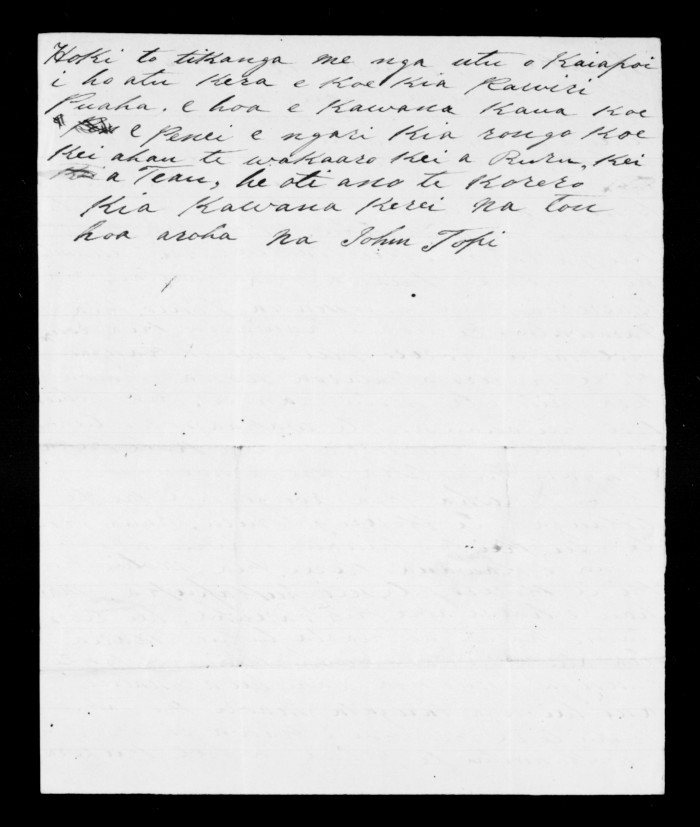 Hoki to tikanga me nga utu o Kaiapoi
i ho atu Kera e Koe Kia Rawiri
Puaha. e hoa e Kawana Kaua Koe
e Penei e ngari Kia rongo Koe
Kei ahau te wakaaro Kei a Ruru, Kei
a Teau, he oti ano te Korero
Kia Kawana Kerei na tou
hoa aroha na John Topi